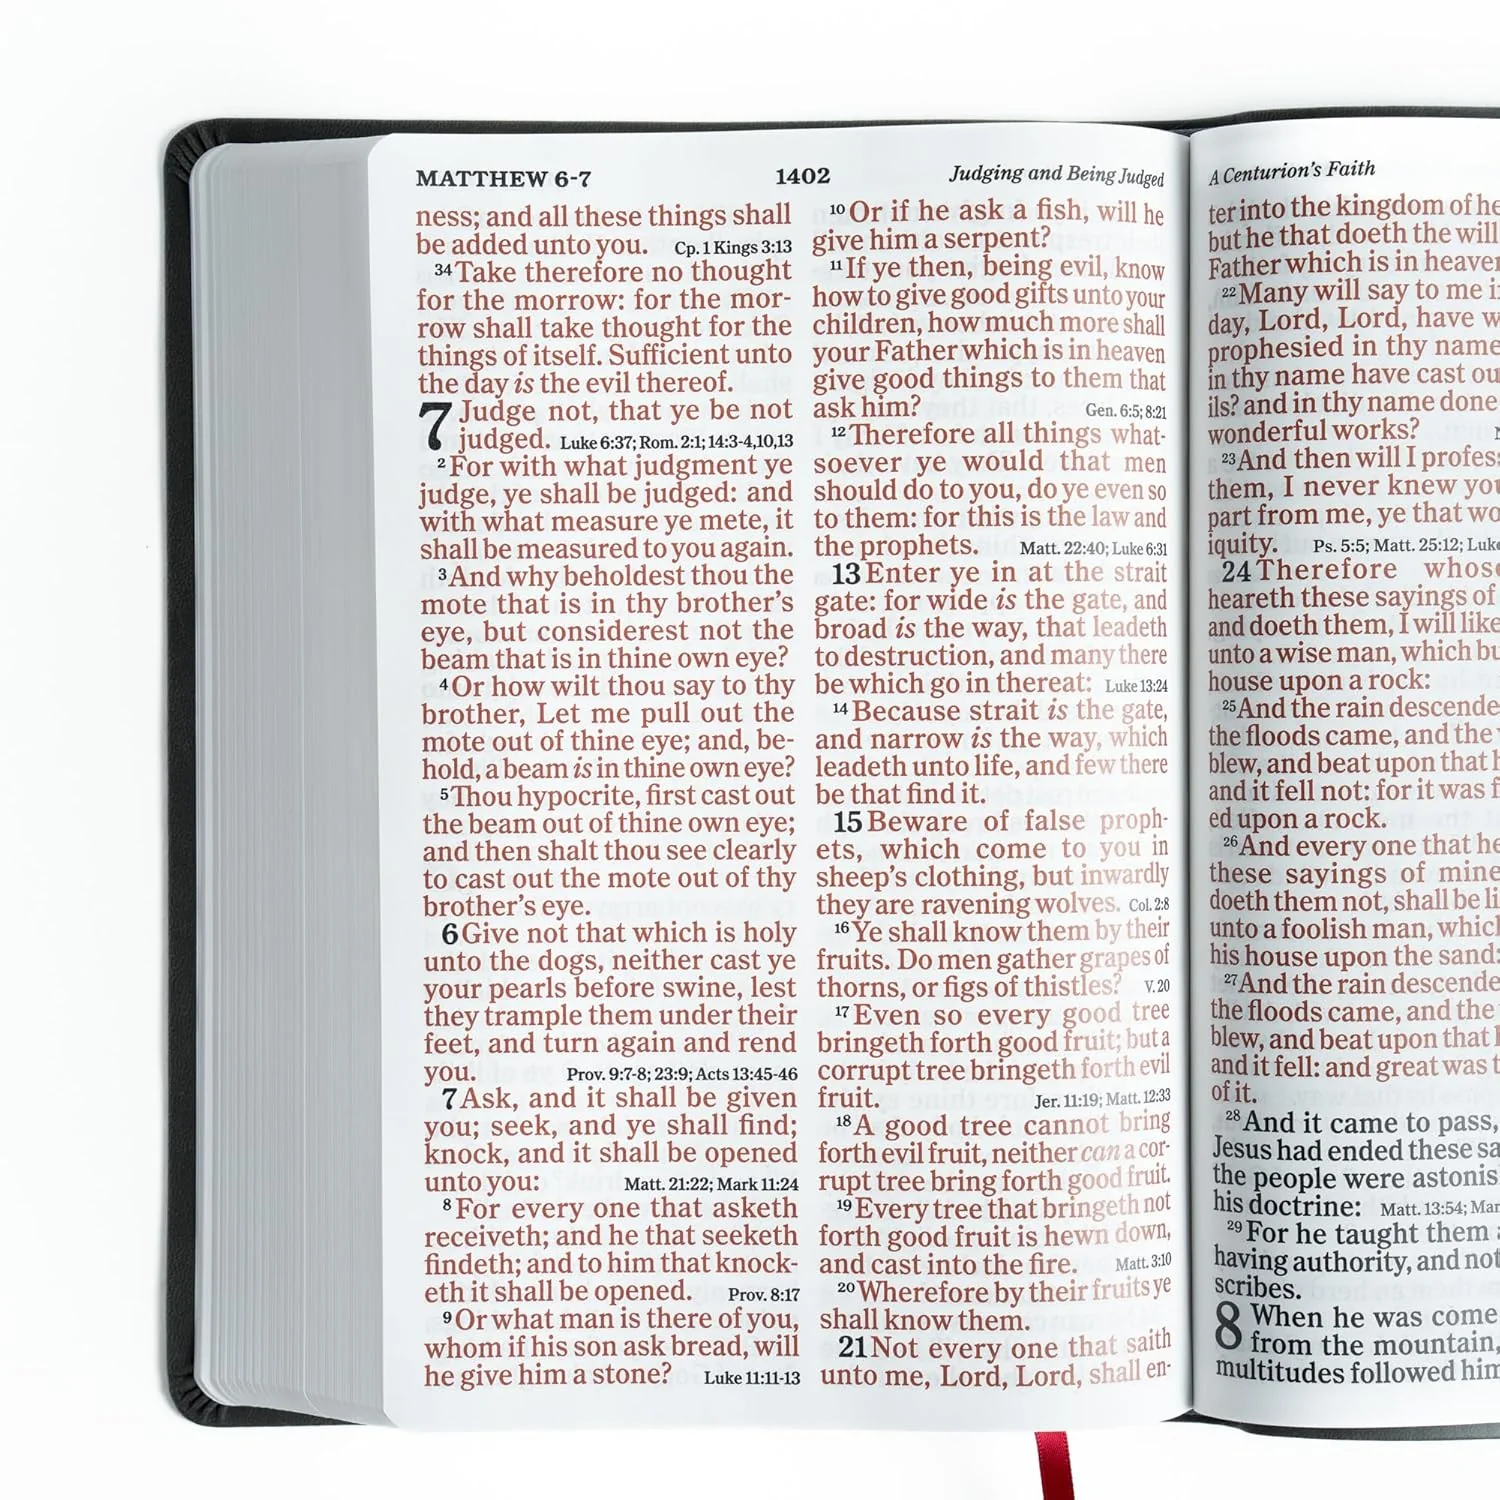 MATTHEW 6-7
1402
Judging and Being Judged
ness; and all these things shall
be added unto you. Cp. 1 Kings 3:13
34 Take therefore no thought
for the morrow: for the mor-
row shall take thought for the
things of itself. Sufficient unto
the day is the evil thereof.
7 Judge not, that ye be not
judged. Luke 6:37; Rom. 2:1; 14:3-4,10,13
2 For with what judgment ye
judge, ye shall be judged: and
with what measure ye mete, it
shall be measured to you again.
3 And why beholdest thou the
mote that is in thy brother's
eye, but considerest not the
beam that is in thine own eye?
4 Or how wilt thou say to thy
brother, Let me pull out the
mote out of thine eye; and, be-
hold, a beam is in thine own eye?
5 Thou hypocrite, first cast out
the beam out of thine own eye;
and then shalt thou see clearly
to cast out the mote out of thy
brother's eye.
6 Give not that which is holy
unto the dogs, neither cast ye
your pearls before swine, lest
they trample them under their
feet, and turn again and rend
you. Prov. 9:7-8; 23:9; Acts 13:45-46
7 Ask, and it shall be given
you; seek, and ye shall find;
knock, and it shall be opened
unto you: Matt. 21:22; Mark 11:24
8 For every one that asketh
receiveth; and he that seeketh
findeth; and to him that knock-
eth it shall be opened. Prov. 8:17
9 Or what man is there of you,
whom if his son ask bread, will
he give him a stone? Luke 11:11-13
10 Or if he ask a fish, will he
give him a serpent?
11 If ye then, being evil, know
how to give good gifts unto your
children, how much more shall
your Father which is in heaven
give good things to them that
ask him? Gen. 6:5; 8:21
12 Therefore all things what-
soever ye would that men
should do to you, do ye even so
to them: for this is the law and
the prophets. Matt. 22:40; Luke 6:31
13 Enter ye in at the strait
gate: for wide is the gate, and
broad is the way, that leadeth
to destruction, and many there
be which go in thereat: Luke 13:24
14 Because strait is the gate,
and narrow is the way, which
leadeth unto life, and few there
be that find it.
15 Beware of false proph-
ets, which come to you in
sheep's clothing, but inwardly
they are ravening wolves. Col. 2:8
16 Ye shall know them by their
fruits. Do men gather grapes of
thorns, or figs of thistles? V. 20
17 Even so every good tree
bringeth forth good fruit; but a
corrupt tree bringeth forth evil
fruit. Jer. 11:19; Matt. 12:33
18 A good tree cannot bring
forth evil fruit, neither can a cor-
rupt tree bring forth good fruit.
19 Every tree that bringeth not
forth good fruit is hewn down,
and cast into the fire. Matt. 3:10
20 Wherefore by their fruits ye
shall know them.
21 Not every one that saith
unto me, Lord, Lord, shall en-
A Centurion's Faith
ter into the kingdom of he
but he that doeth the will
Father which is in heaven
22 Many will say to me i
day, Lord, Lord, have w
prophesied in thy name
in thy name have cast ou
ils? and in thy name done
wonderful works?
23 And then will I profes
them, I never knew you
part from me, ye that wo
iquity. Ps. 5:5; Matt. 25:12; Luke
24 Therefore whose
heareth these sayings of
and doeth them, I will like
unto a wise man, which bu
house upon a rock:
25 And the rain descende
the floods came, and the
blew, and beat upon that h
and it fell not: for it was f
ed upon a rock.
26 And every one that he
these sayings of mine
doeth them not, shall be li
unto a foolish man, which
his house upon the sand:
27 And the rain descende
the floods came, and the
blew, and beat upon that
and it fell: and great was t
of it.
28 And it came to pass,
Jesus had ended these sa
the people were astonis
his doctrine: Matt. 13:54; Mar
29 For he taught them
having authority, and not
scribes.
8 When he was come
from the mountain,
multitudes followed him